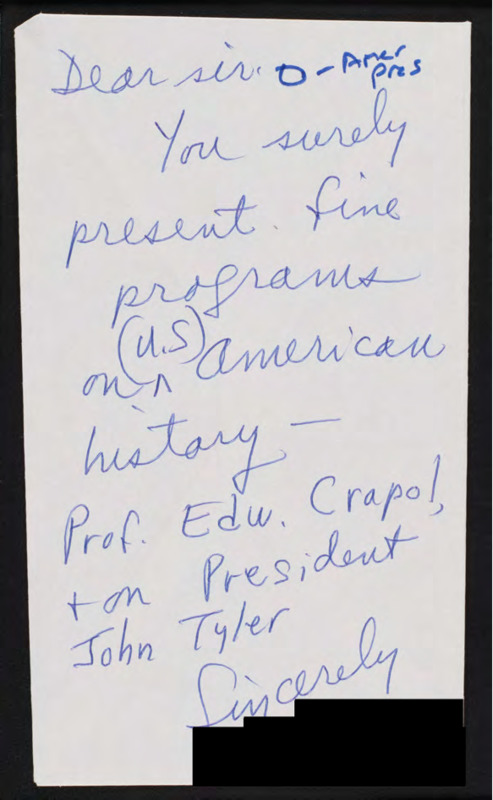 Dear sir.
O - Amer
Pres
You surely
present. fine
programs
(U.S)
on ^ American
history —
Prof. Edw. Crapol,
+ on President
John Tyler
Sincerely